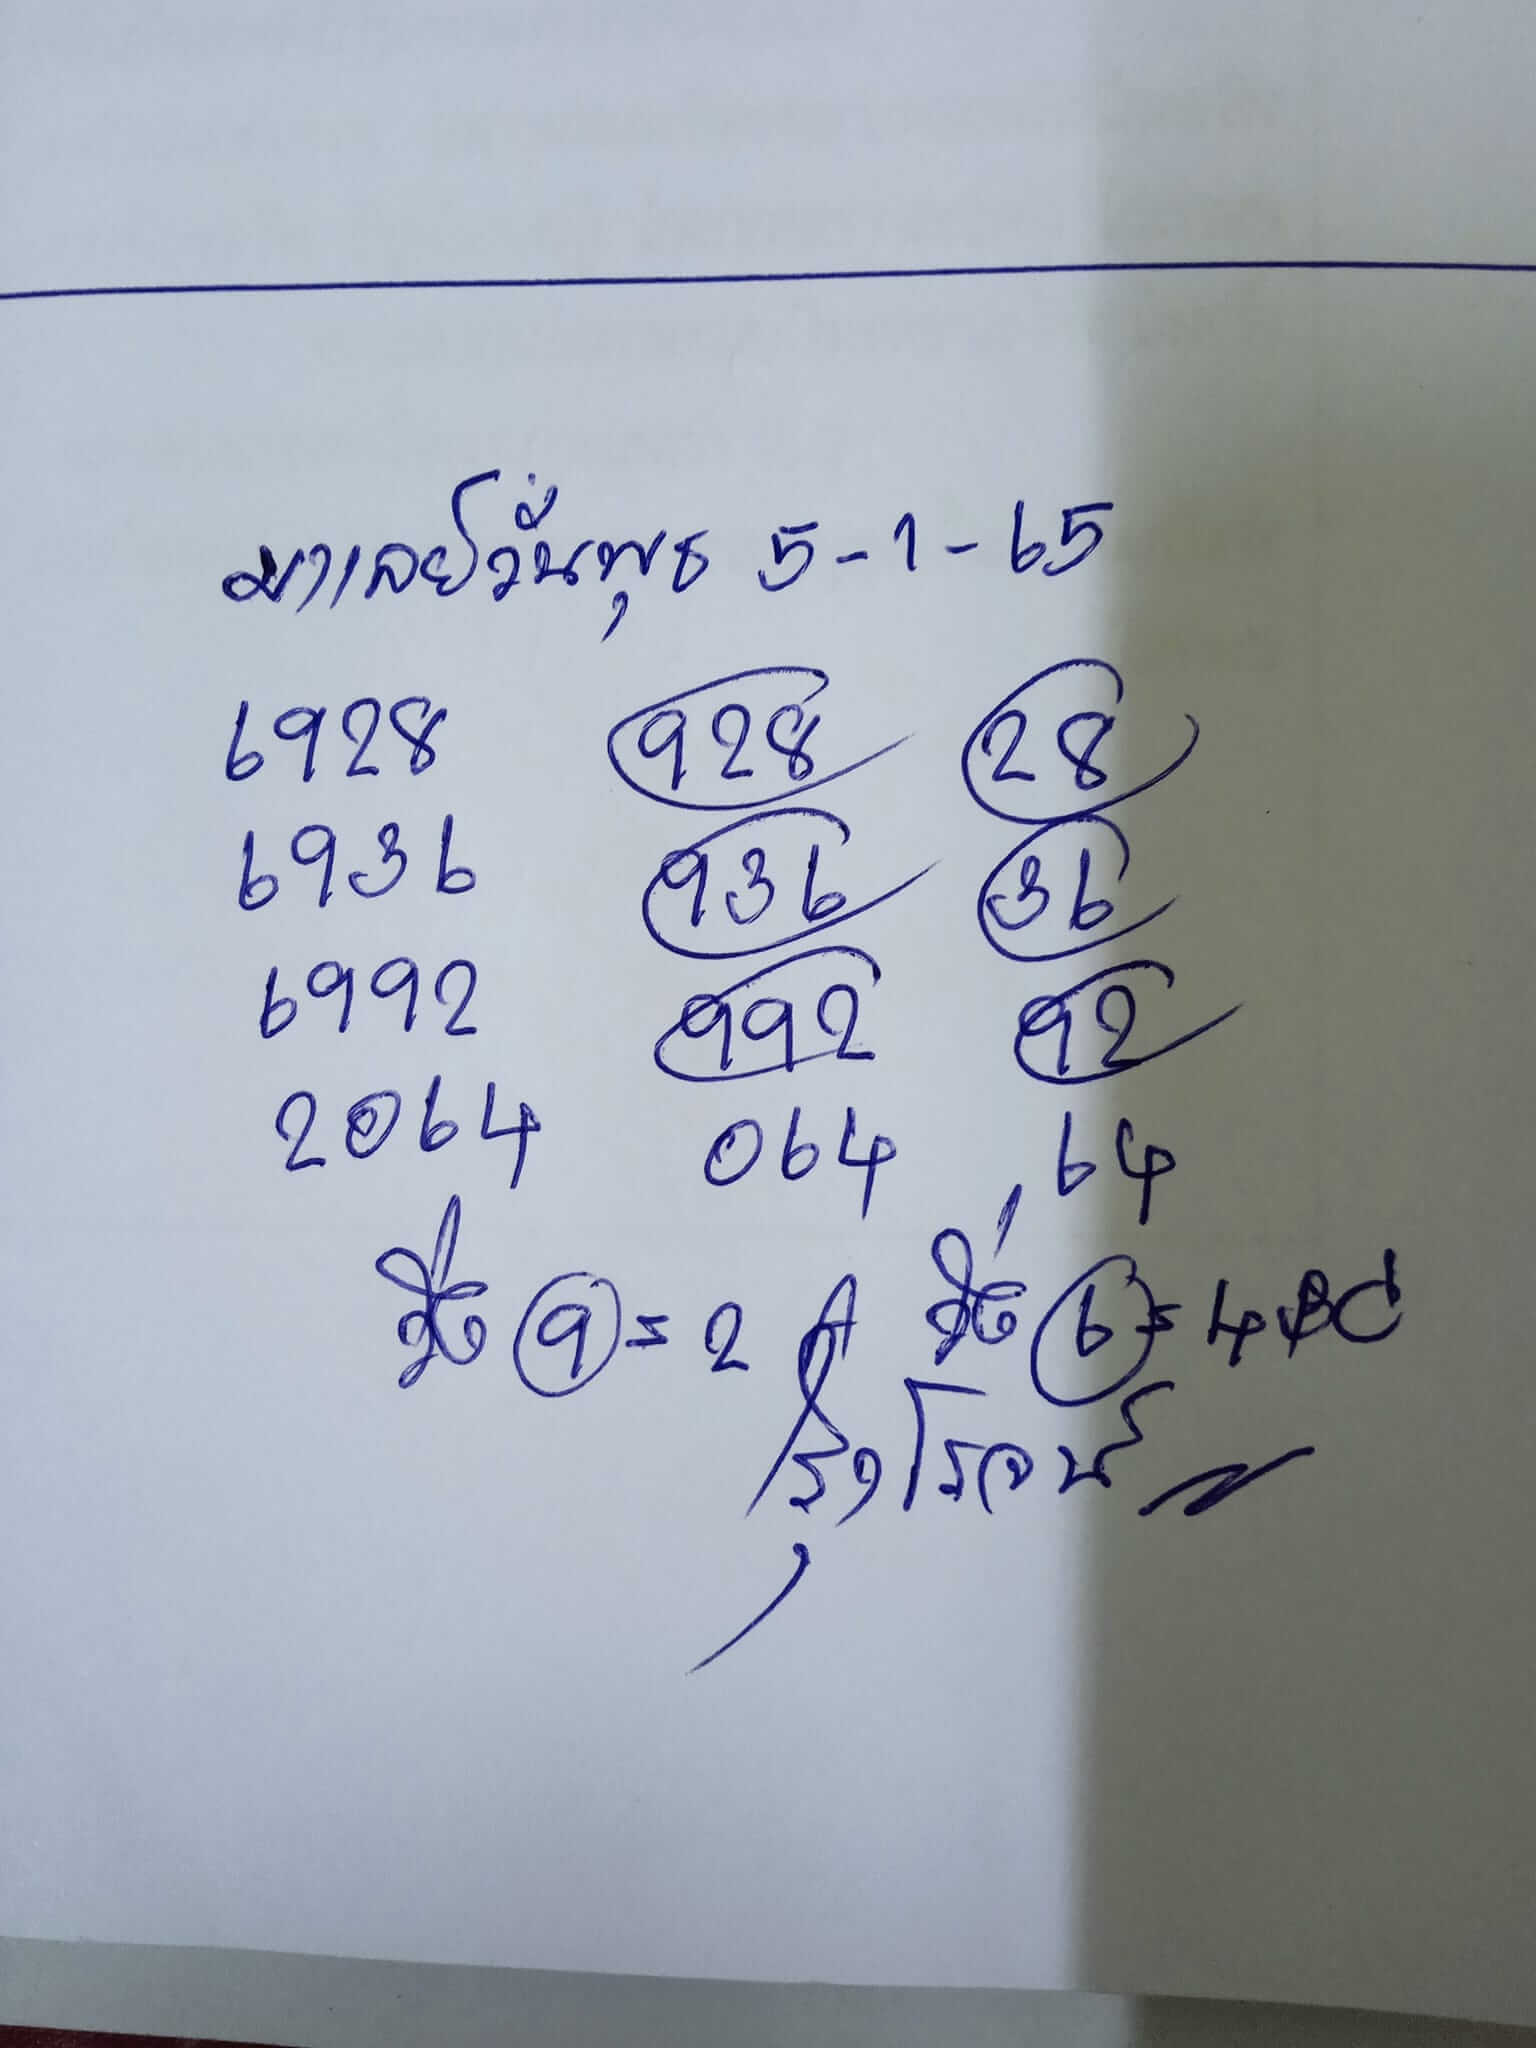 มาเลย์วันพุธ 5-1-65
6928 928 28
6936 936 36
6992 992 92
2064 064 64
วิ่ง 9=2 A วิ่ง 6=4BC
รุ่งโรจน์